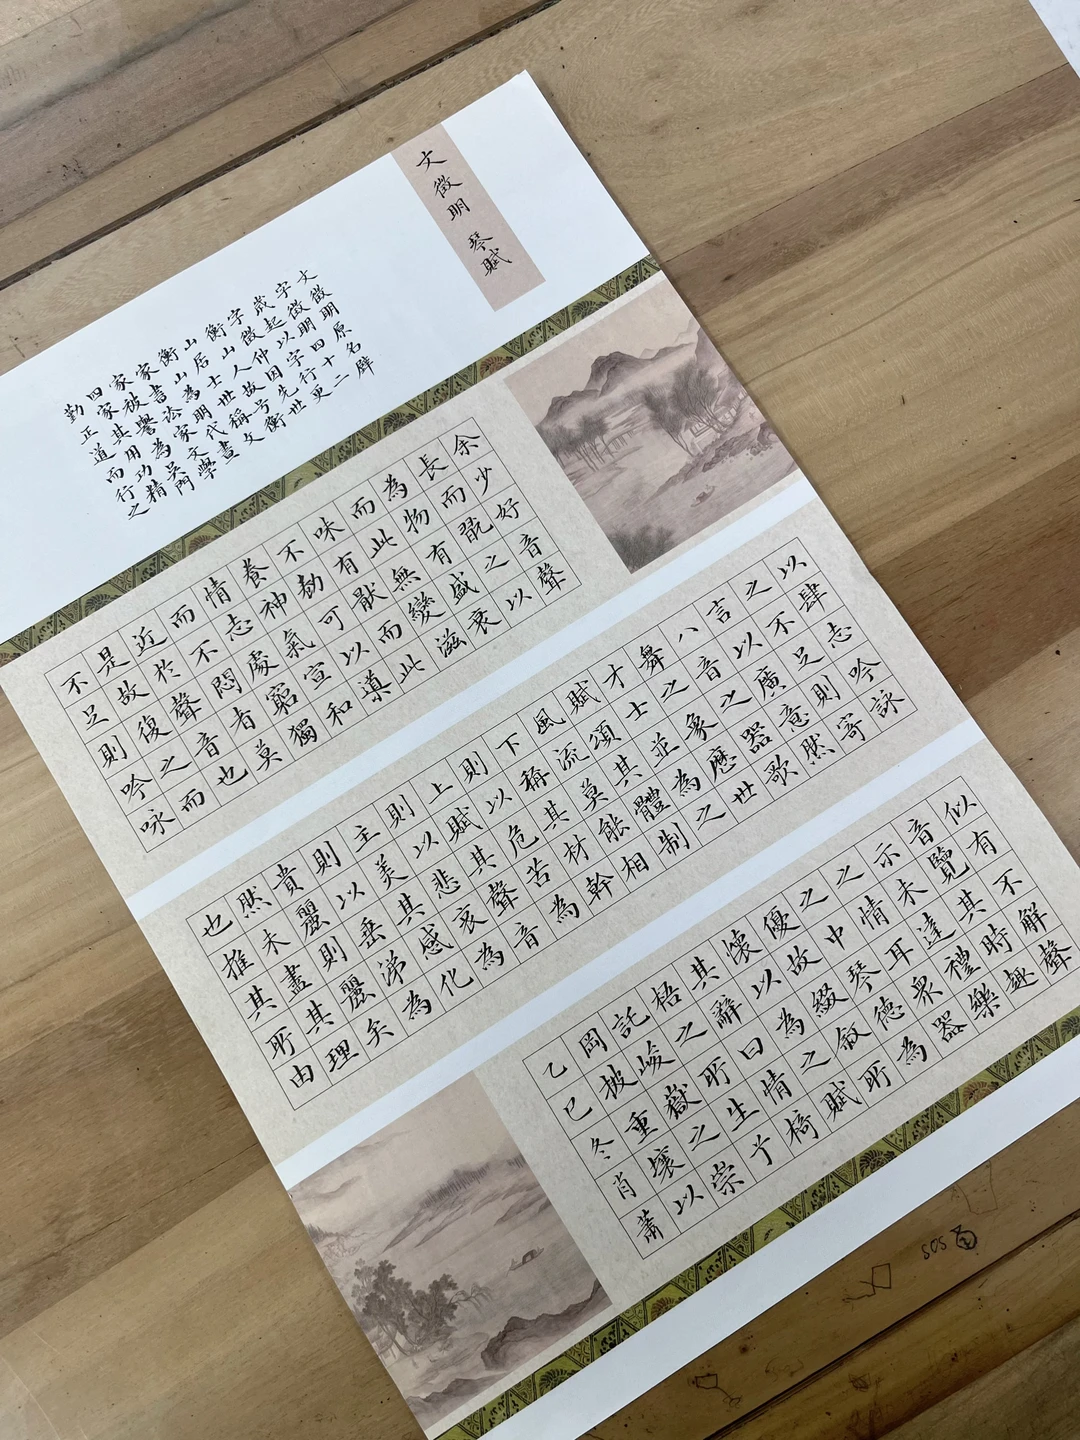 文徵明 琴賦
文徵明原名壁
字徵明四十二
歲起以字行更
字徵仲因先世
衡山人故號衡
山居士世稱文
衡山為明代畫
家書法家文學
家被譽為吳門
四家其用功精
勤正道而行之
余少好音聲
長而翫之以
為物有盛衰
而此無變滋
味有猒而此
不勌可以導
養神氣宣和
情志處窮獨
而不悶者莫
近於聲音也
是故復之而
不足則吟咏
以肆志吟詠
之不足則寄
言以廣意然
八音之器歌
舞之象歷世
才士並為之
賦頌其體制
風流莫能相
下稱其材幹
則以危苦為
上賦其聲音
則以悲哀為
主美其感化
則以垂涕為
貴麗則麗矣
然未盡其理
也推其所由
似有不解聲
音覽其時趣
示未達禮樂
之情耳眾器
之中琴德為
優故綴敘所
懷以為之賦
其辭曰情椅
梧之所生于
託峻嶽之崇
岡披重壤以
乙巳冬肖蕭
SOS